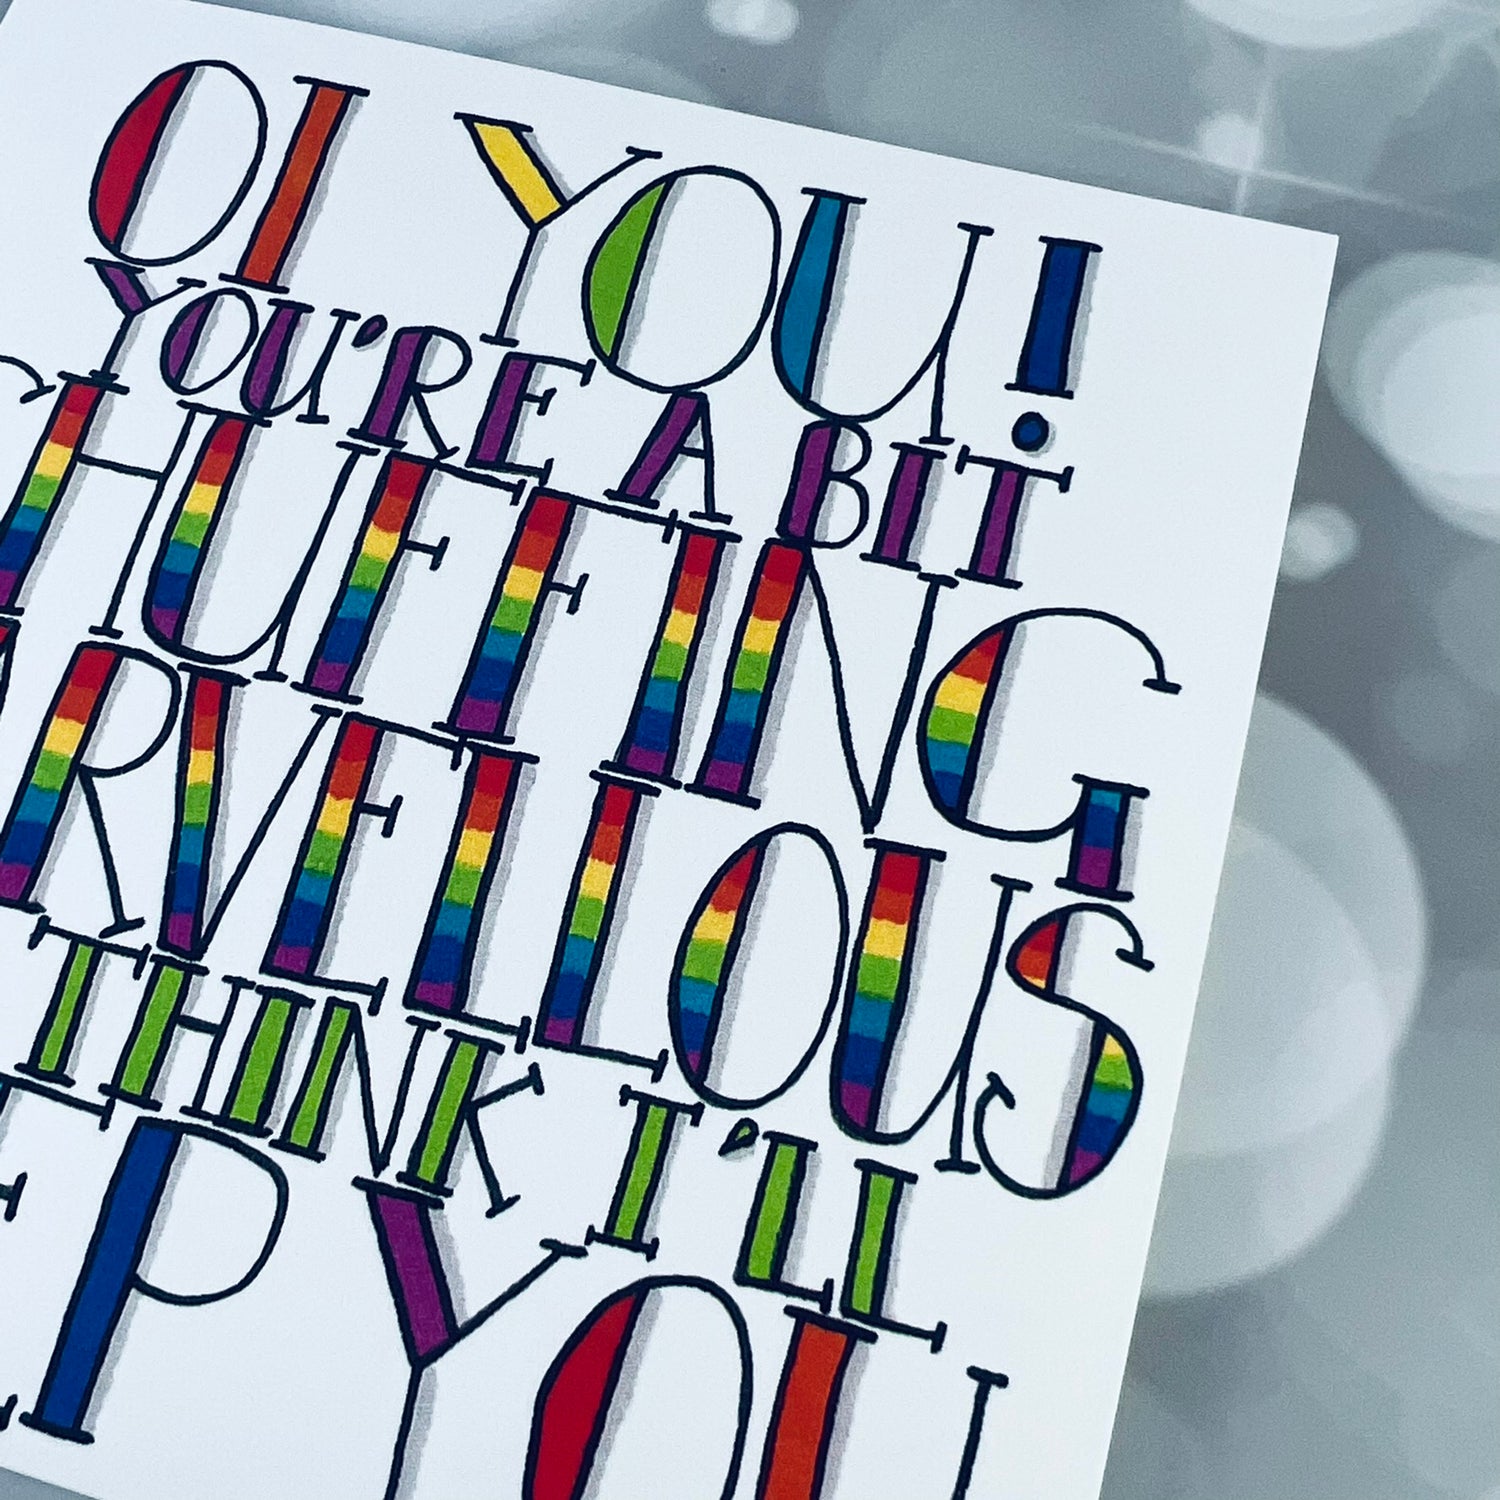 OI YOU!
YOU'RE A BIT
CHUFFING
ARVELLOUS
THINK I'LL
EP YOU